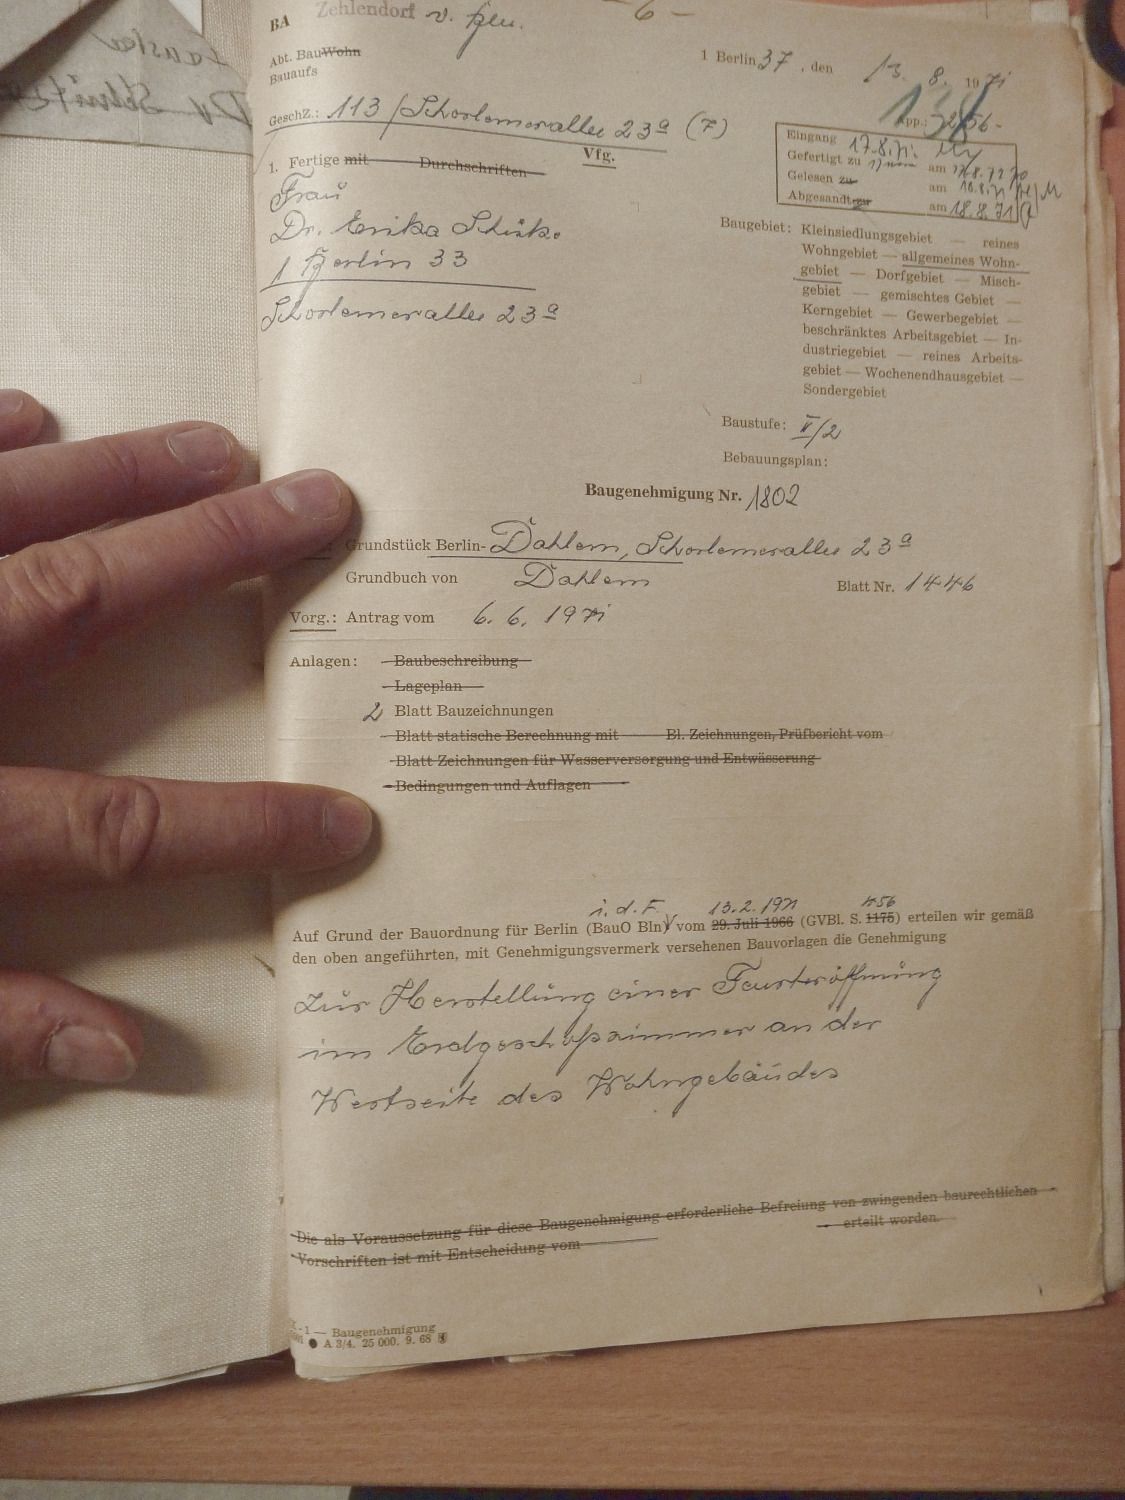 - 6 -
BA Zehlendorf v. Bln.
Abt. BauWohn
Bauaufs
1 Berlin 37, den 13. 8. 1971
GeschZ.: 113/Schorlemerallee 23a (7)
App.: 
138
Vfg.
1. Fertige mit Durchschriften
Eingang 17.8.71.
Gefertigt zu am
Gelesen zu am 18.8.71
Abgesandt zu am 18.8.71
Frau
Dr. Erika
1 Berlin 33
Schorlemerallee 23a
Baugebiet: Kleinsiedlungsgebiet — reines
Wohngebiet — allgemeines Wohn-
gebiet — Dorfgebiet — Misch-
gebiet — gemischtes Gebiet —
Kerngebiet — Gewerbegebiet —
beschränktes Arbeitsgebiet — In-
dustriegebiet — reines Arbeits-
gebiet — Wochenendhausgebiet —
Sondergebiet
Baustufe: II/2
Bebauungsplan:
Baugenehmigung Nr. 1802
Grundstück Berlin-Dahlem, Schorlemerallee 23a
Grundbuch von Dahlem Blatt Nr. 1446
Vorg.: Antrag vom 6. 6. 1971
Anlagen: Baubeschreibung
Lageplan
2 Blatt Bauzeichnungen
Blatt statische Berechnung mit Bl. Zeichnungen, Prüfbericht vom
Blatt Zeichnungen für Wasserversorgung und Entwässerung
Bedingungen und Auflagen
i. d. F. 13.2.1971 456
Auf Grund der Bauordnung für Berlin (BauO Bln) vom 29. Juli 1966 (GVBl. S. 1175) erteilen wir gemäß
den oben angeführten, mit Genehmigungsvermerk versehenen Bauvorlagen die Genehmigung
zur Herstellung einer Fensteröffnung
im Erdgeschoßzimmer an der
Westseite des Wohngebäudes
Die als Voraussetzung für diese Baugenehmigung erforderliche Befreiung von zwingenden baurechtlichen
Vorschriften ist mit Entscheidung vom erteilt worden.
- 1 — Baugenehmigung
A 3/4. 25 000. 9. 68